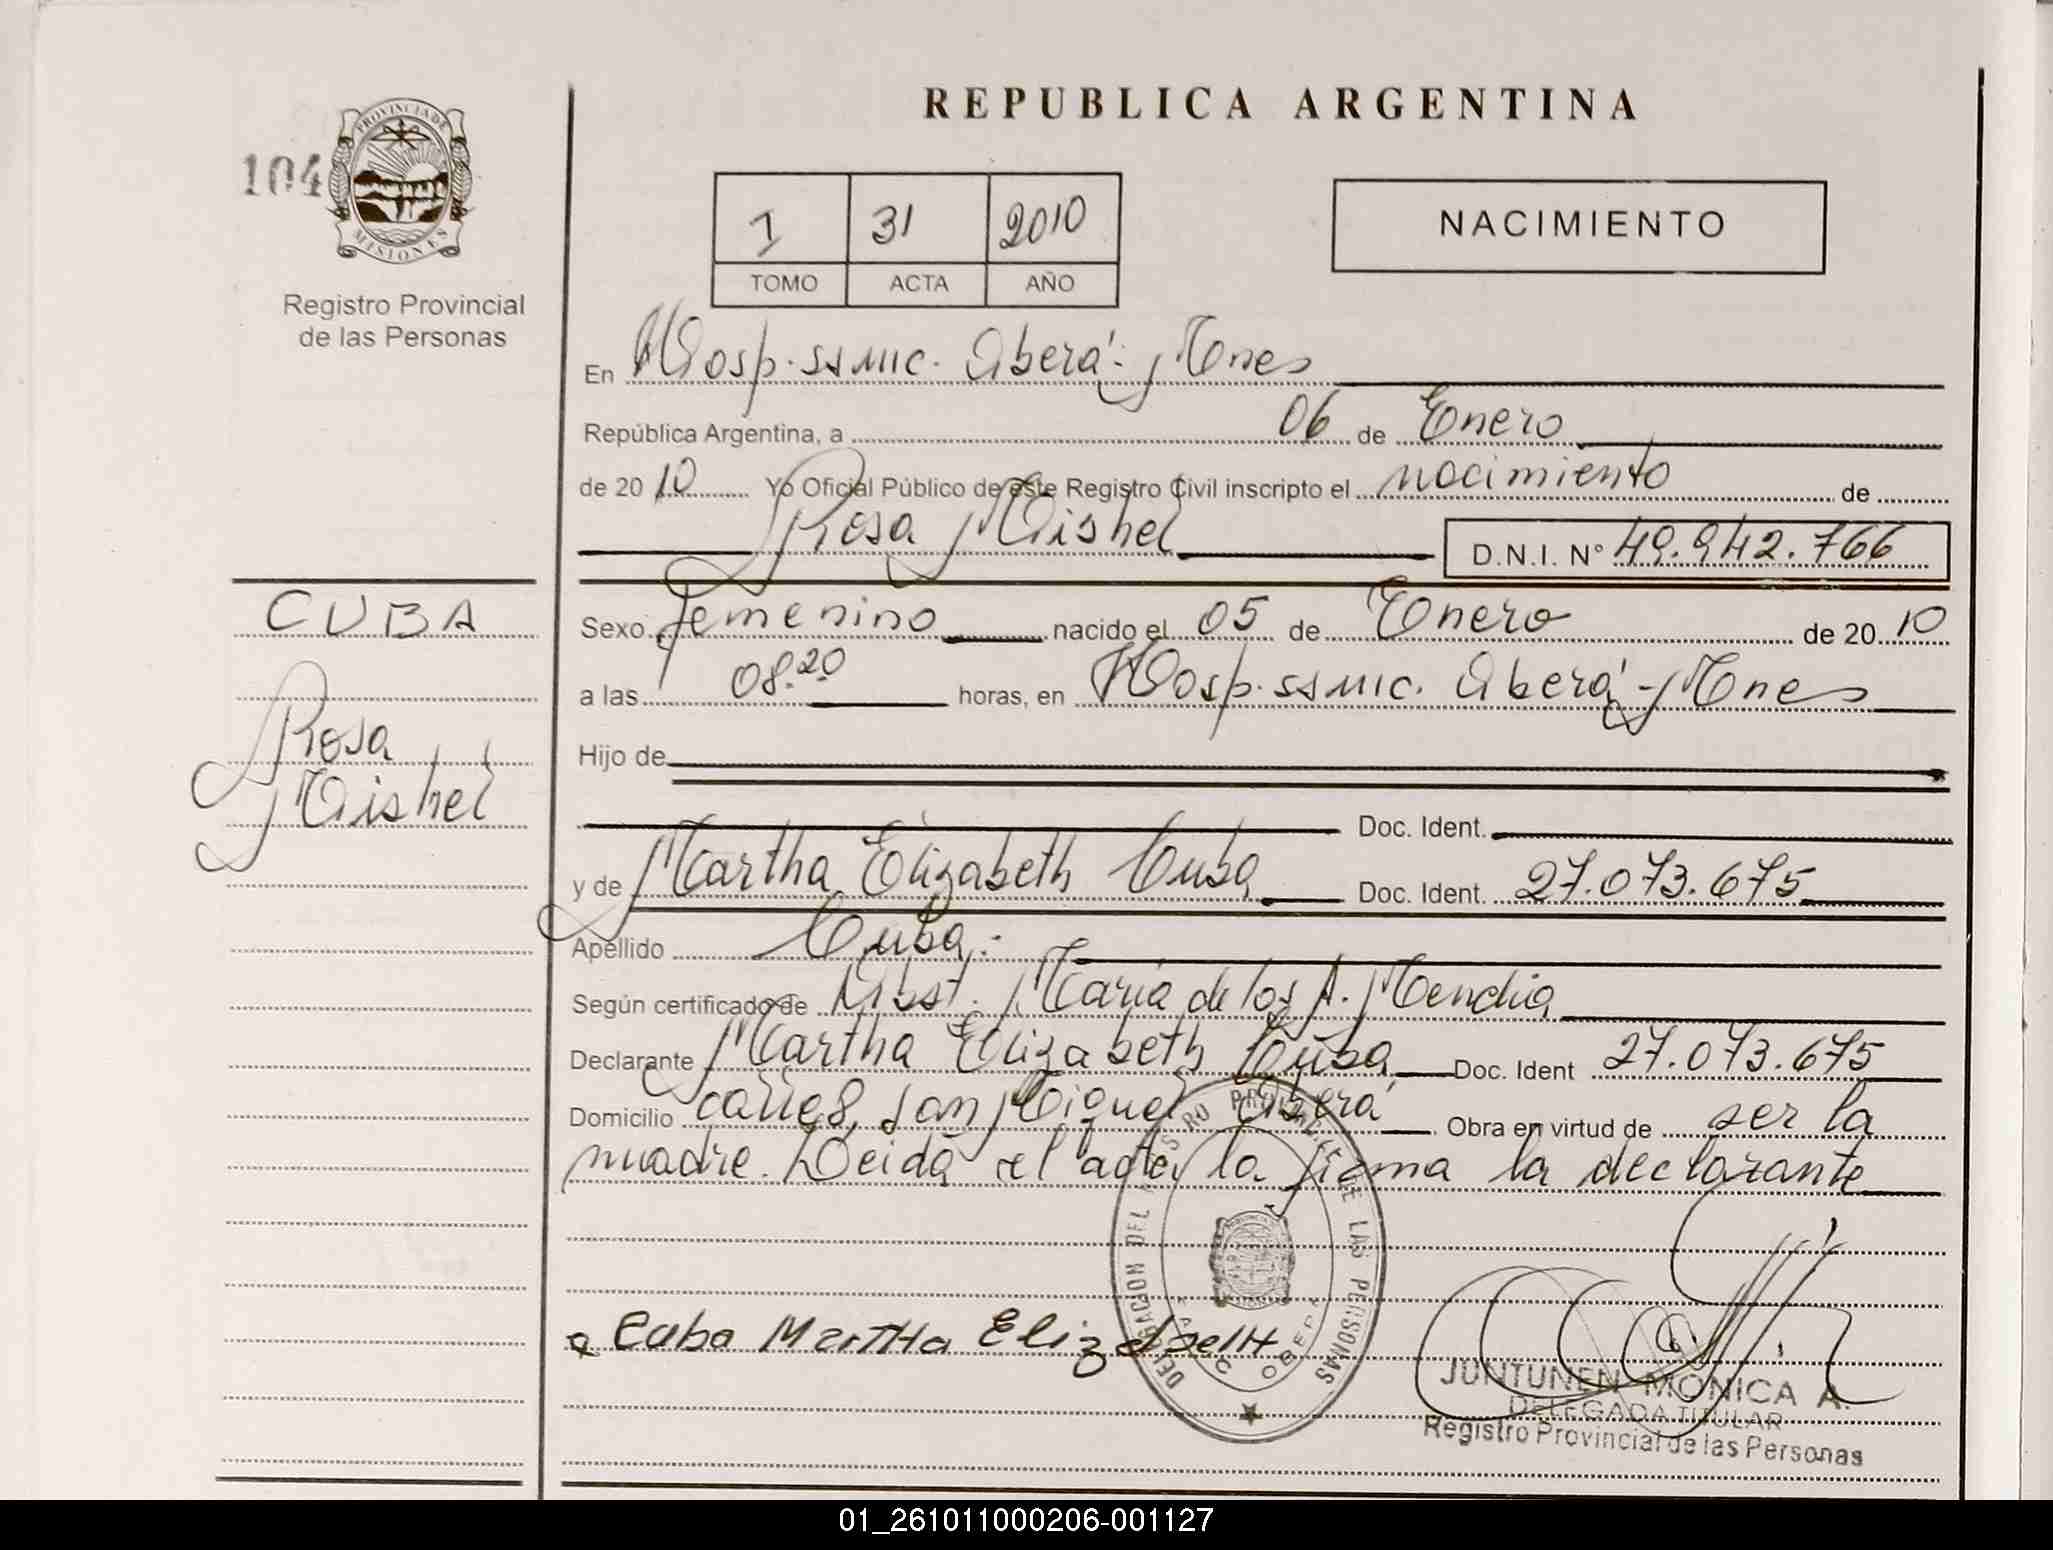 REPUBLICA ARGENTINA
104
PROVINCIA DE MISIONES
Registro Provincial
de las Personas
1 31 2010
TOMO ACTA AÑO
NACIMIENTO
En Hosp. ssmic. Oberá- Mnes
República Argentina, a 06 de Enero
de 2010 Yo Oficial Público de este Registro Civil inscripto el nacimiento de
Rosa Mishel D.N.I. Nº 49.942.766
CUBA
Rosa
Mishel
Sexo femenino nacido el 05 de Enero de 2010
a las 08.20 horas, en Hosp. ssmic. Oberá- Mnes
Hijo de
Doc. Ident.
y de Martha Elizabeth Cuba Doc. Ident. 27.073.675
Apellido Cuba.
Según certificado de Obst. María de los A. Mendia
Declarante Martha Elizabeth Cuba Doc. Ident 27.073.675
Domicilio calle 8, San Miguel Oberá Obra en virtud de ser la
madre. Leida el acta la firma la declarante
Cuba Martha Elizabeth
DELEGACION DEL REGISTRO PROVINCIAL DE LAS PERSONAS
OBERA
JUNTUNEN MONICA A.
DELEGADA TITULAR
Registro Provincial de las Personas
01_261011000206-001127